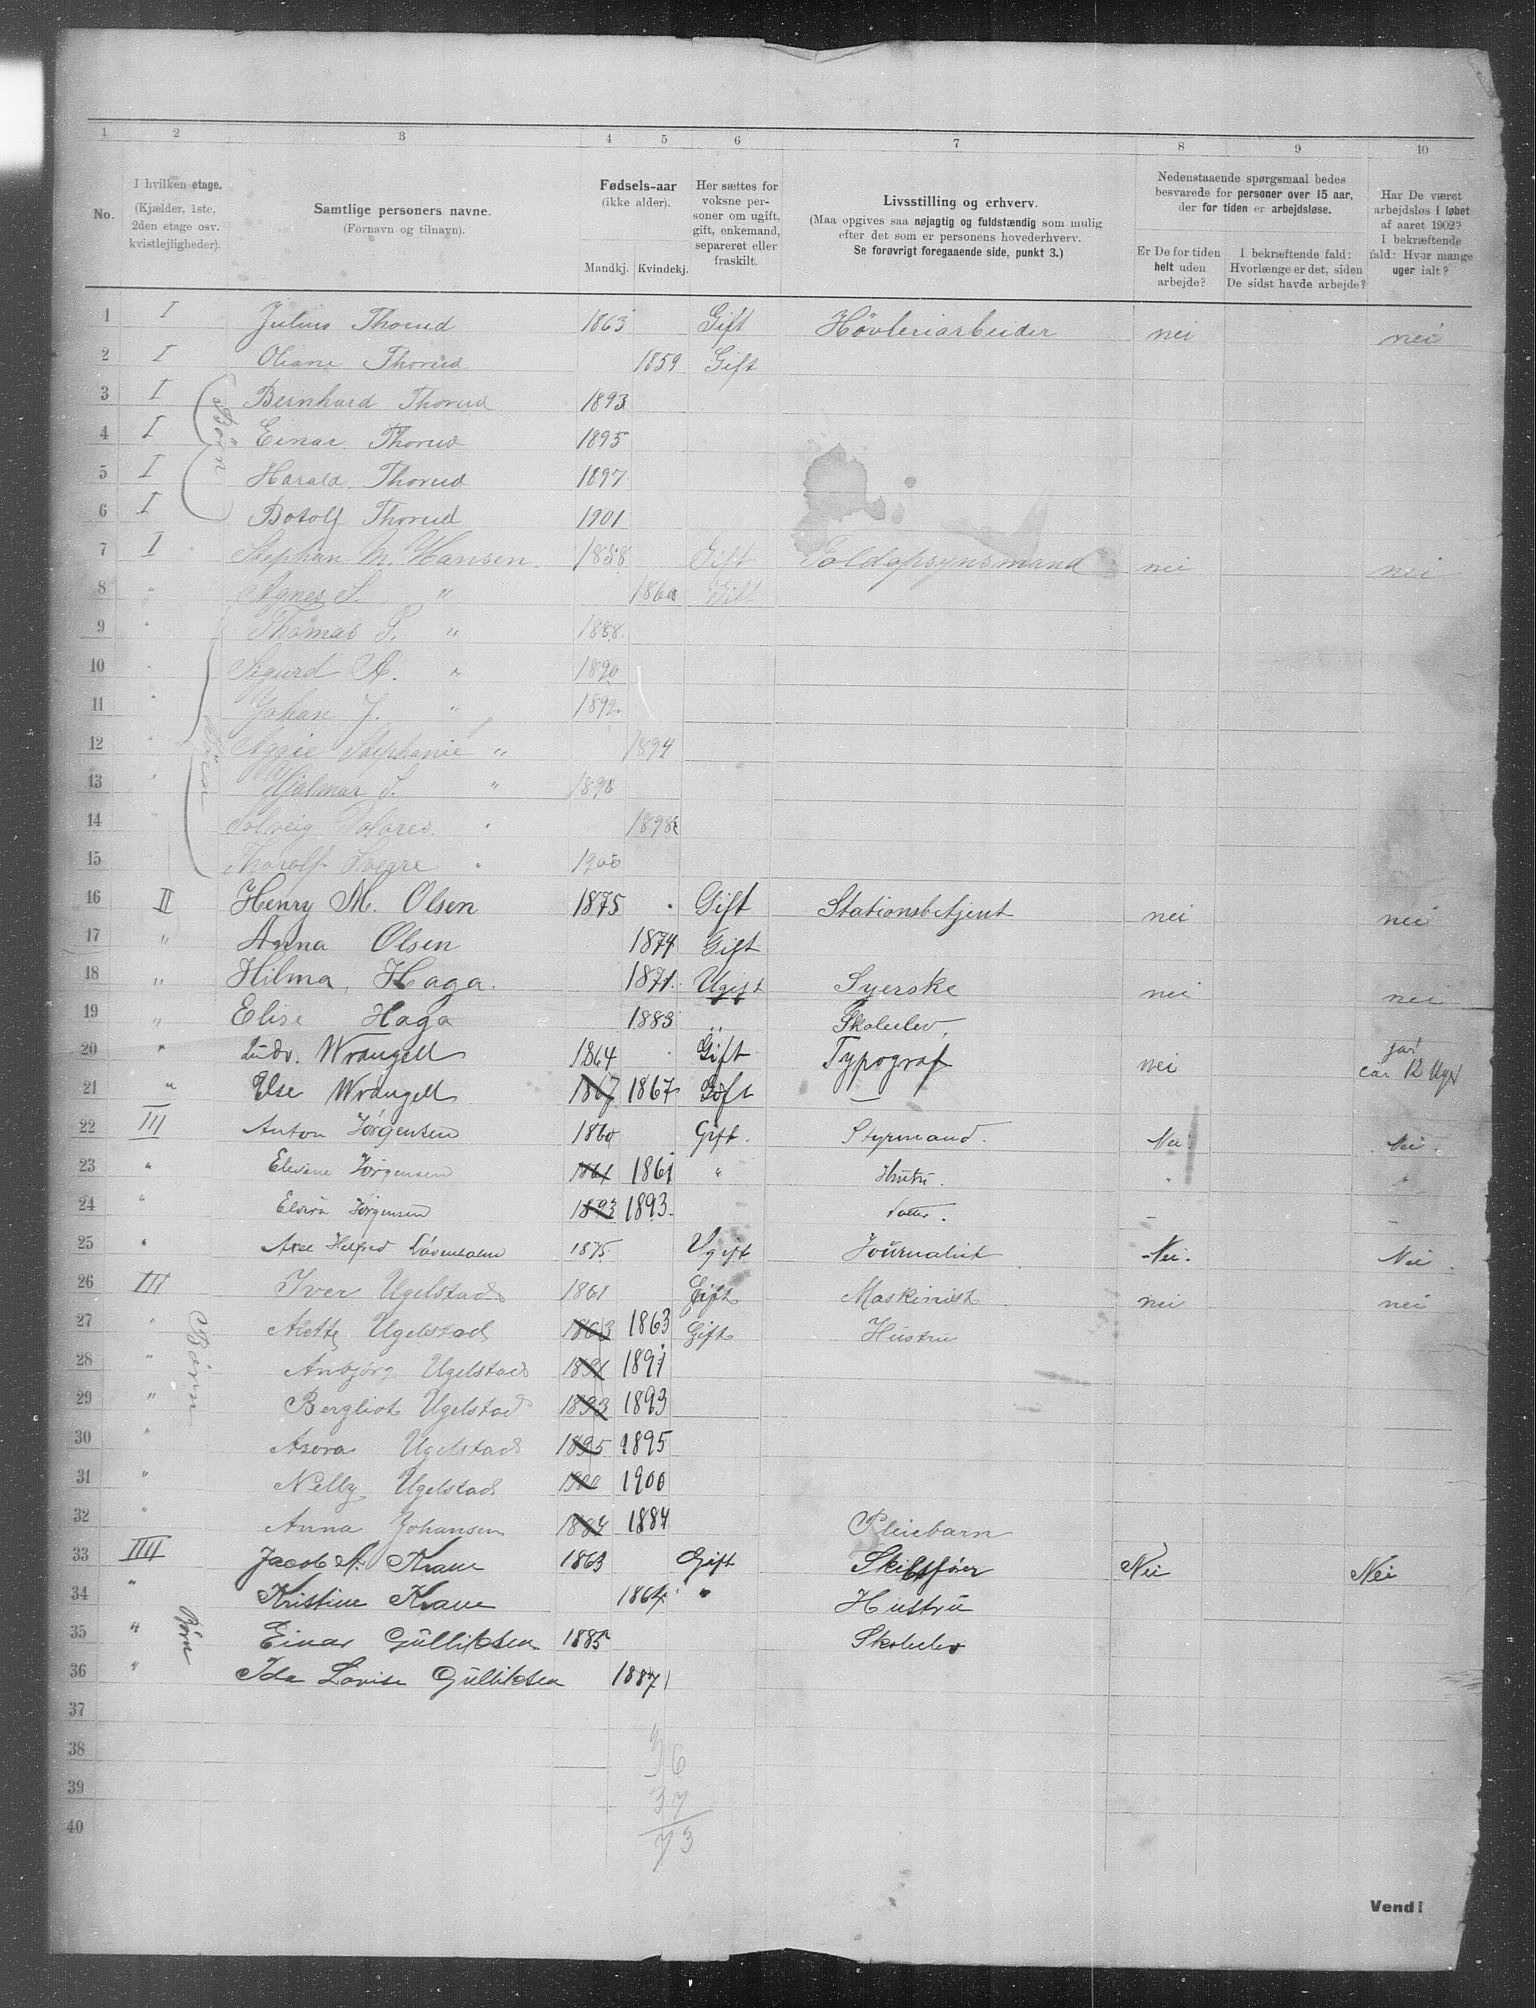 1 2 3 4 5 6 7 8 9 10
No.
I hvilken etage.
(Kjælder, 1ste, 2den etage osv. kvistlejligheder).
Samtlige personers navne.
(Fornavn og tilnavn).
Fødsels-aar
(ikke alder).
Mandkj. Kvindekj.
Her sættes for voksne personer om ugift, gift, enkemand, separeret eller fraskilt.
Livsstilling og erhverv.
(Maa opgives saa nøjagtig og fuldstændig som mulig efter det som er personens hovederhverv.
Se forøvrigt foregaaende side, punkt 3.)
Nedenstaaende spørgsmaal bedes besvarede for personer over 15 aar, der for tiden er arbejdsløse.
Er De for tiden helt uden arbejde?
I bekræftende fald: Hvorlænge er det, siden De sidst havde arbejde?
Har De været arbejdsløs i løbet af aaret 1902? I bekræftende fald: Hvor mange uger ialt?
1 I Julius Thorud 1863 Gift Høvleriarbeider nei nei
2 I Oliane Thorud 1859 Gift
3 I Bernhard Thorud 1893
Børn
4 I Einar Thorud 1895
5 I Harald Thorud 1897
6 I Botolf Thorud 1901
7 I Stephan M. Hansen 1858 Gift Toldopsynsmand nei nei
8 " Agnes S. " 1860 Gift
9 " Thomas P. " 1888
10 " Sigurd A. " 1890
11 " Johan J. " 1892
Børn
12 " Stephanie " 1894
13 " Hjalmar S. " 1896
14 Solveig Dolores " 1898
15 Thorolf Sverre " 1900
16 II Henry M. Olsen 1875 Gift Stationsbetjent nei nei
17 " Anna Olsen 1874 Gift
18 " Hilma Haga 1871 Ugift Syerske nei nei
19 " Elise Haga 1883 " Skoleelev
20 " Ludv. Wrangell 1864 Gift Typograf nei ja! car 12 Uger
21 " Else Wrangell 1867 1867 Gift —
22 III Anton Jørgensen 1860 Gift. Styrmand. Nei Nei.
23 " Elevine Jørgensen 1861 1861 " Hustru. " "
24 " Elvira Jørgensen 1893 1893 datter. – –
25 " Axel Helfred 1875 Ugift Journalist Nei. Nei.
26 III Iver Ugelstad 1861 Gift Maskinist nei nei
27 " Alette Ugelstad 1863 1863 Gift Hustru
Børn
28 " Anbjørg Ugelstad 1891 1891
29 " Bergliot Ugelstad 1893 1893
30 " Asora Ugelstad 1895 1895
31 " Nelly Ugelstad 1900 1900
32 " Anna Johansen 1884 1884 Pleiebarn
33 IIII Jacob A. Krane 1863 Gift Skibsfører Nei Nei
34 " Kristine Krane 1864 " Hustru
Børn
35 " Einar Gulliksen 1885 Skoleelev
36 " Ida Lovise Gulliksen 1887
37
38
39
40
36
37
73
Vend!